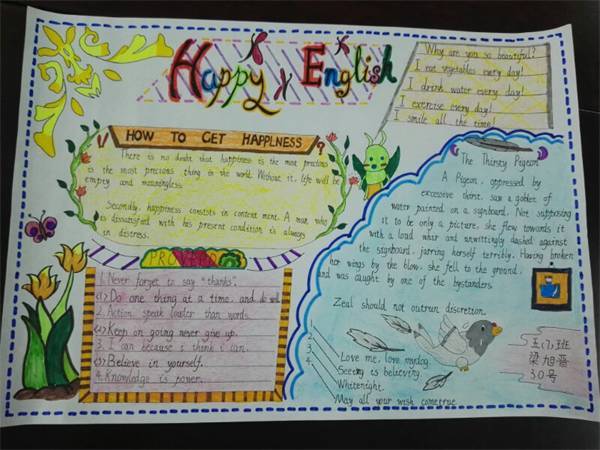 Happy English
Why are you so beautiful?
I eat vegetables every day!
I drink water every day!
I exercise every day!
I smile all the time!
HOW TO GET HAPPLNESS
There is no doubt that happiness is the most precious
is the most precious thing in the world. Without it, life will be
empty and meaningless.
Secondly, happiness consists in content ment. A man who
is dissatisfied with his present condition is always
in distress.
PROVERB
1. Never forget to say "thanks".
Do one thing at a time, and do well.
2. Action speak louder than words.
Keep on going never give up.
3. I can because i think i can.
Believe in yourself.
4. Knowledge is power.
The Thirsty Pegeon
A Pigeon, oppressed by
excessive thirst, saw a goblet of
water painted on a signboard. Not supposing
it to be only a picture, she flew towards it
with a loud whir and unwittingly dashed against
the signboard, jarring herself terribly. Having broken
her wings by the blow, she fell to the ground,
and was caught by one of the bystanders.
Zeal should not outrun discretion.
Love me, love my dog.
Seeing is believing.
Whitenight.
May all your wish come true.
五(7)班
梁旭
30号